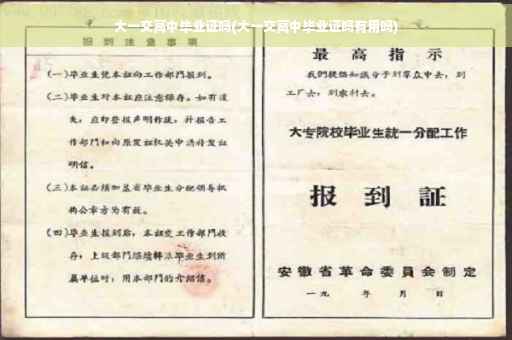 大一交高中毕业证吗(大一交高中毕业证吗有用吗)
报到注意事项
(一)毕业生凭本证向工作部门报到。
(二)毕业生对本证应注意保存。如有遗
失,应即登报声明作废,并报告工
作部门和向原发证机关申请补发证
明信。
(三)本证必须加盖省毕业生分配领导机
构公章方为有效。
(四)毕业生报到后,本证交工作部门收
存;上级部门继续转派毕业生到所
属单位时,用本部门的介绍信。
最高指示
我们提倡知识分子到群众中去,到
工厂去,到农村去。
大专院校毕业生統一分配工作
报到証
安徽省革命委員会制定
一九 年 月 日